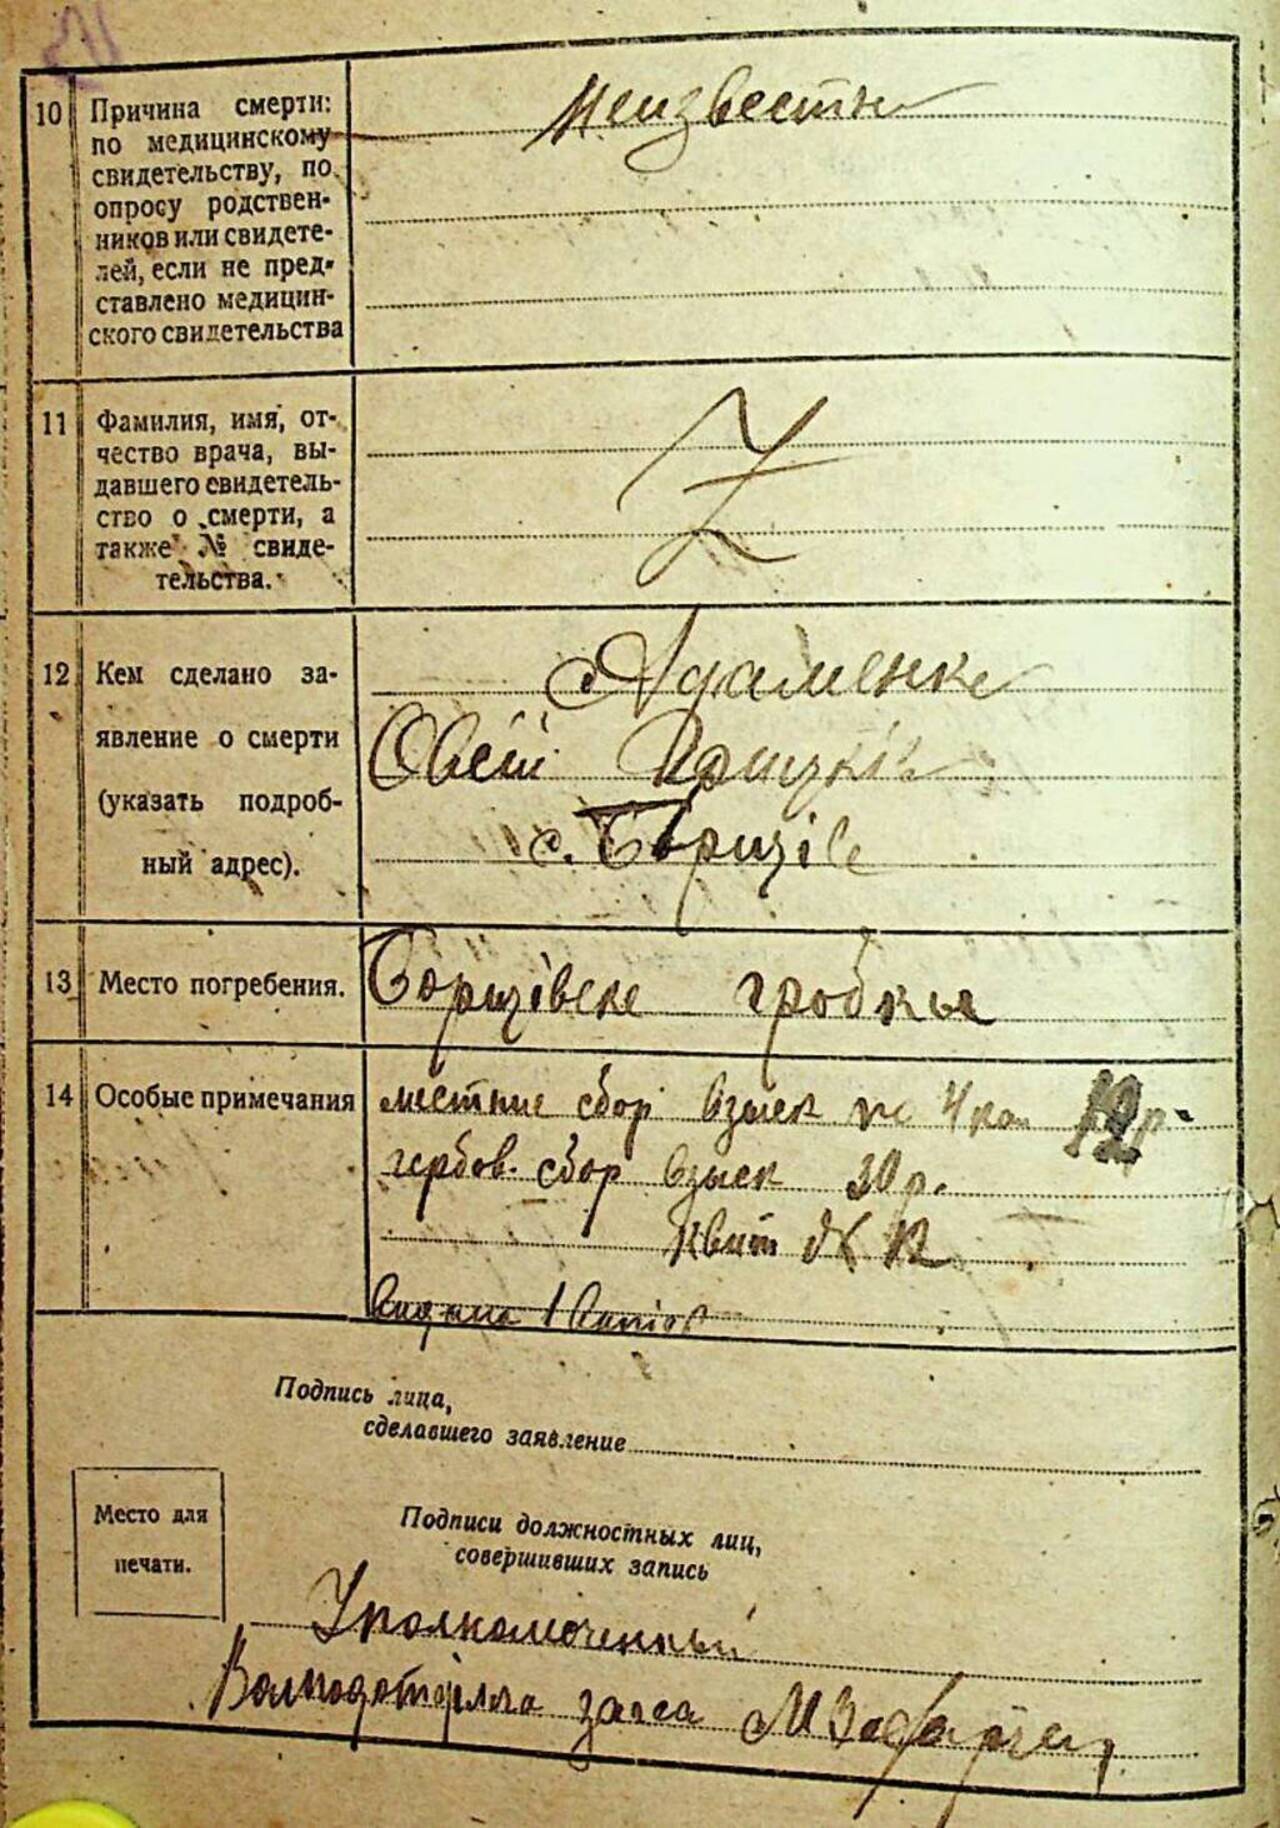 10 Причина смерти:
по медицинскому
свидетельству, по
опросу родствен-
ников или свидете-
лей, если не пред-
ставлено медицин-
ского свидетельства
Неизвестн
11 Фамилия, имя, от-
чество врача, вы-
давшего свидетель-
ство о смерти, а
также № свиде-
тельства.
Z
12 Кем сделано за-
явление о смерти
(указать подроб-
ный адрес).
Адаменко
Овсій
с. Борщів
13 Место погребения.
Борщівске гробкы
14 Особые примечания
местные сбор взыск по 12 р.
гербов. сбор взыск 30 р.
Квит № 12
1
Подпись лица,
сделавшего заявление
Место для
печати.
Подписи должностных лиц,
совершивших запись
Уполномоченный
загса М